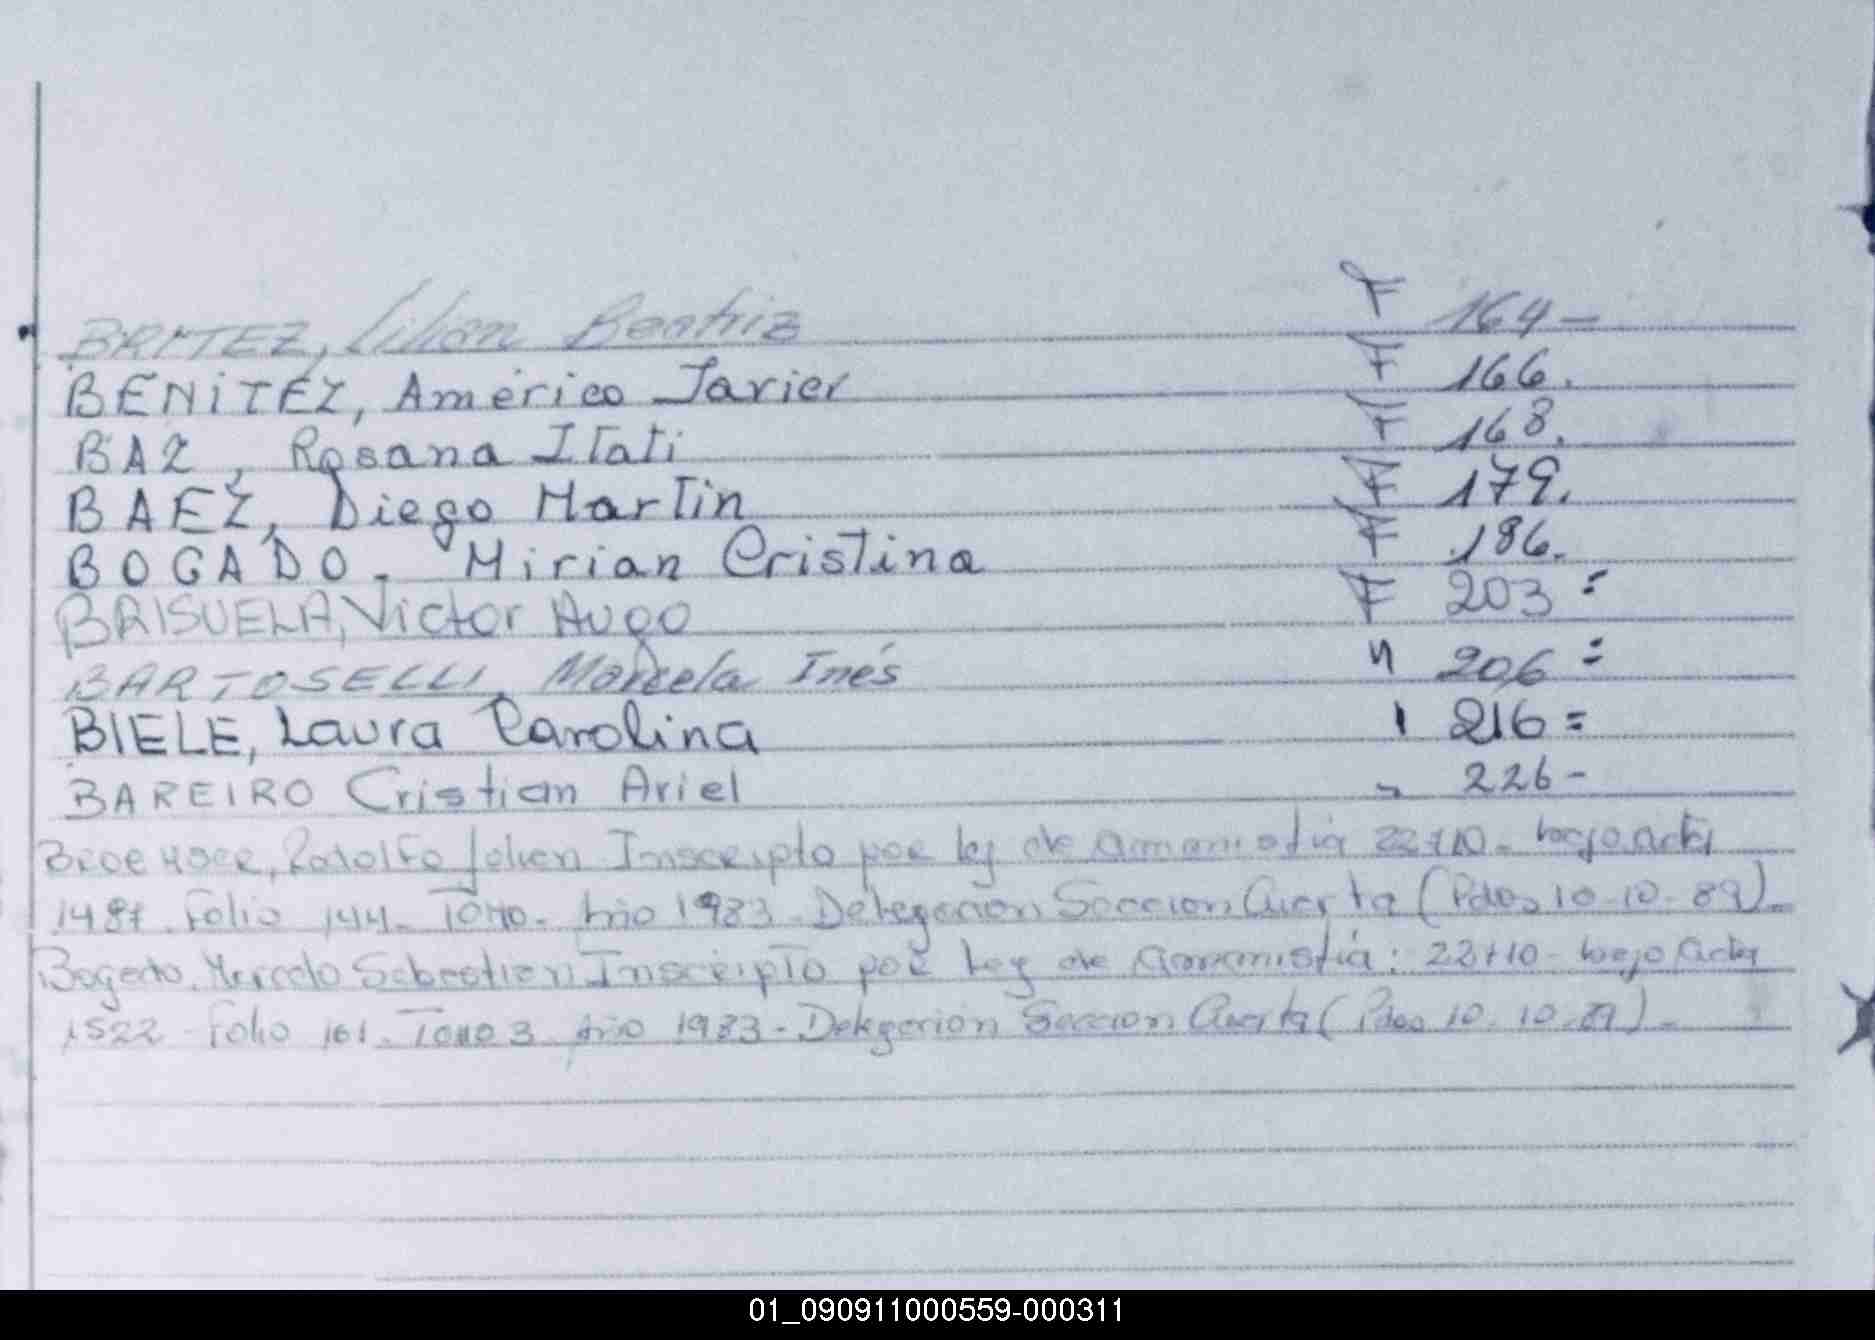 BRITEZ, Lilian Beatriz F 164-
BENITEZ, Américo Javier F 166.
BAZ, Rosana Itati F 168.
BAEZ, Diego Martin F 179.
BOGADO. Mirian Cristina F 186.
BRISUELA, Victor Hugo F 203=
BARTOSELLI, Marcela Inés " 206=
BIELE, Laura Carolina " 216=
BAREIRO Cristian Ariel " 226-
Rodolfo Julian Inscripto por ley de Amnistia 22410- bajo acta
1487. Folio 144- Tomo- Año 1983- Delegacion Seccion Cuarta (Pdas 10-10-89)-
Bogado, Marcelo Sebastian Inscripto por Ley de Amnistia: 22410- bajo Acta
1522- Folio 161. Tomo 3. Año 1983- Delegacion Seccion Cuarta (Pdas 10-10-89)-
01_090911000559-000311